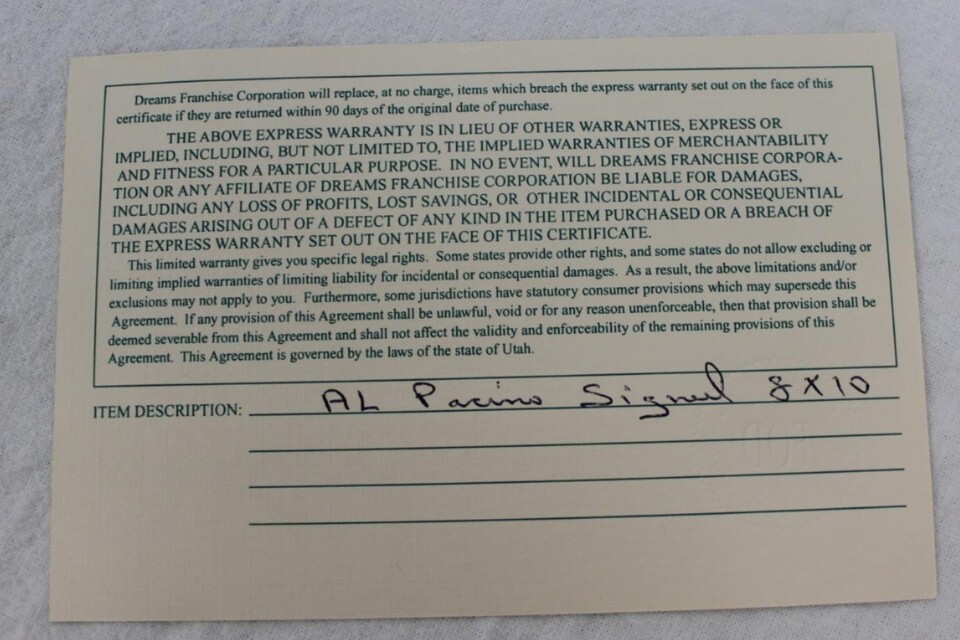 Dreams Franchise Corporation will replace, at no charge, items which breach the express warranty set out on the face of this
certificate if they are returned within 90 days of the original date of purchase.
THE ABOVE EXPRESS WARRANTY IS IN LIEU OF OTHER WARRANTIES, EXPRESS OR
IMPLIED, INCLUDING, BUT NOT LIMITED TO, THE IMPLIED WARRANTIES OF MERCHANTABILITY
AND FITNESS FOR A PARTICULAR PURPOSE. IN NO EVENT, WILL DREAMS FRANCHISE CORPORA-
TION OR ANY AFFILIATE OF DREAMS FRANCHISE CORPORATION BE LIABLE FOR DAMAGES,
INCLUDING ANY LOSS OF PROFITS, LOST SAVINGS, OR OTHER INCIDENTAL OR CONSEQUENTIAL
DAMAGES ARISING OUT OF A DEFECT OF ANY KIND IN THE ITEM PURCHASED OR A BREACH OF
THE EXPRESS WARRANTY SET OUT ON THE FACE OF THIS CERTIFICATE.
This limited warranty gives you specific legal rights. Some states provide other rights, and some states do not allow excluding or
limiting implied warranties of limiting liability for incidental or consequential damages. As a result, the above limitations and/or
exclusions may not apply to you. Furthermore, some jurisdictions have statutory consumer provisions which may supersede this
Agreement. If any provision of this Agreement shall be unlawful, void or for any reason unenforceable, then that provision shall be
deemed severable from this Agreement and shall not affect the validity and enforceability of the remaining provisions of this
Agreement. This Agreement is governed by the laws of the state of Utah.
ITEM DESCRIPTION: AL Pacino Signed 8X10